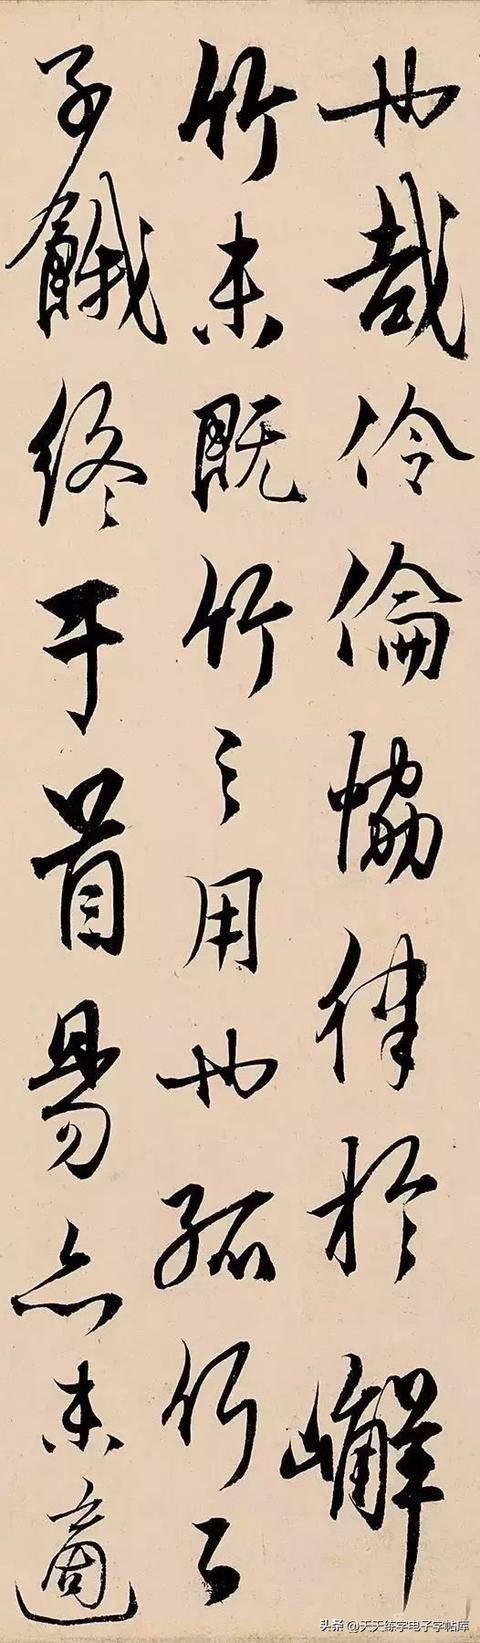 也哉伶倫恊律於嶰
竹未既竹之用也孤竹之
子餓終于首昜亦未適
头条 @天天练字电子字帖库